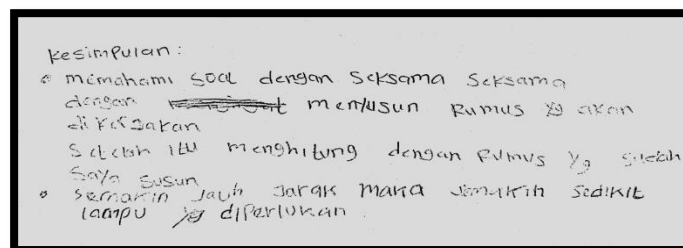 kesimpulan :
• memahami soal dengan seksama seksama
dengan menyusun rumus yg akan
di kerjakan
Setelah itu menghitung dengan rumus yg sudah
saya susun
• semakin jauh jarak maka semakin sedikit
lampu yg diperlukan